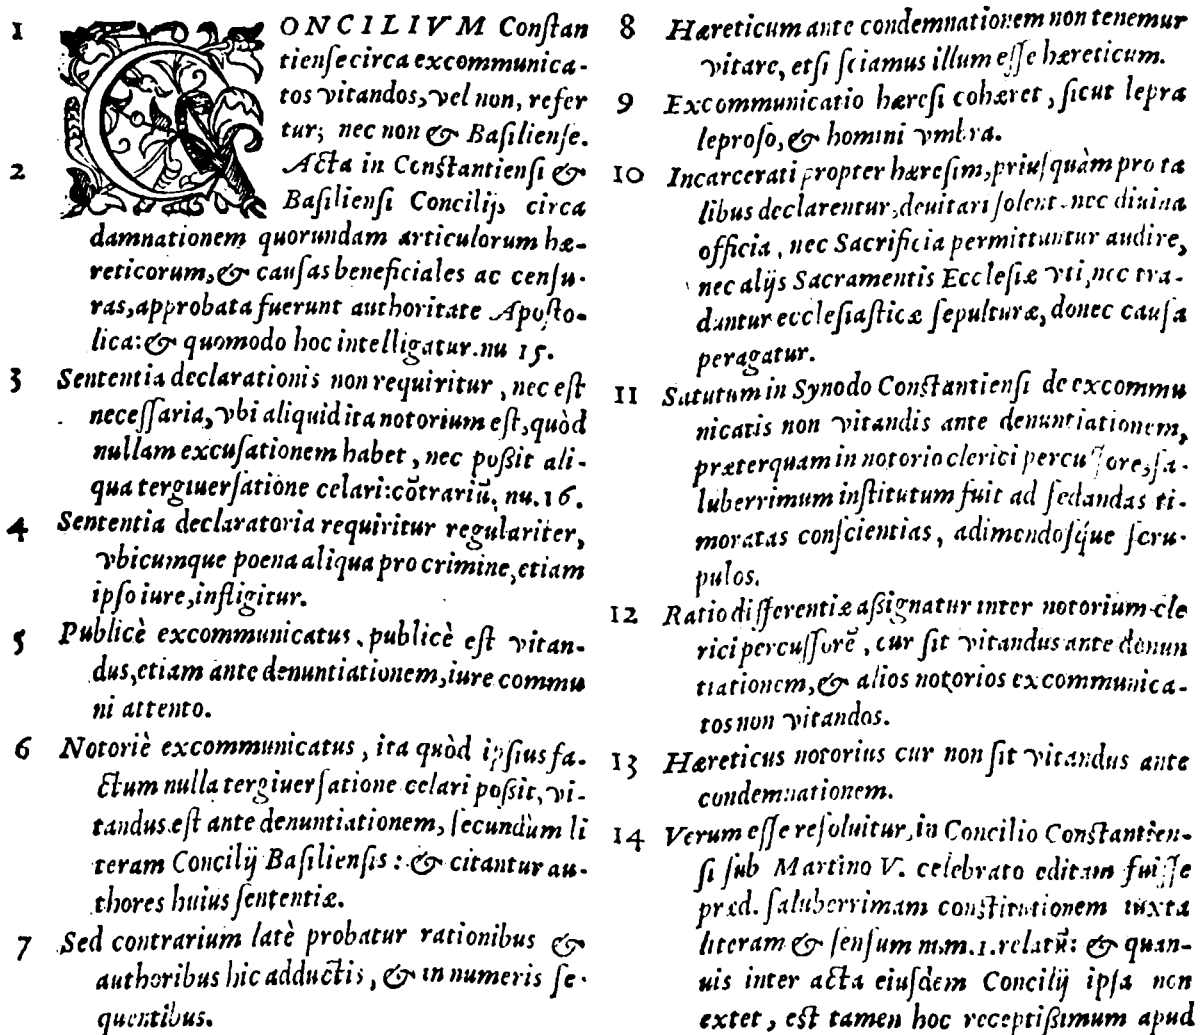 1 CONCILIVM Conſtan
tienſe circa excommunica-
tos vitandos, vel non, refer
tur; nec non & Baſilienſe.
2 Acta in Conſtantienſi &
Baſilienſi Concilijs circa
damnationem quorundam articulorum hæ-
reticorum, & cauſas beneficiales ac cenſu-
ras, approbata fuerunt authoritate Apoſto-
lica: & quomodo hoc intelligatur. nu 15.
3 Sententia declarationis non requiritur, nec eſt
neceſſaria, vbi aliquid ita notorium eſt, quòd
nullam excuſationem habet, nec poßit ali-
qua tergiuerſatione celari: cõtrariũ. nu. 16.
4 Sententia declaratoria requiritur regulariter,
vbicumque poena aliqua pro crimine, etiam
ipſo iure, infligitur.
5 Publicè excommunicatus, publicè eſt vitan-
dus, etiam ante denuntiationem, iure commu
ni attento.
6 Notoriè excommunicatus, ita quòd ipſius fa-
ctum nulla tergiuerſatione celari poſsit, vi-
tandus eſt ante denuntiationem, ſecundùm li
teram Concilij Baſilienſis: & citantur au-
thores huius ſententiæ.
7 Sed contrarium latè probatur rationibus &
authoribus hic adductis, & in numeris ſe-
quentibus.
8 Hæreticum ante condemnationem non tenemur
vitare, etſi ſciamus illum eſſe hæreticum.
9 Excommunicatio hæreſi cohæret, ſicut lepra
leproſo, & homini vmbra.
10 Incarcerati propter hæreſim, priuſquàm pro ta
libus declarentur, deuitari ſolent. nec diuina
officia, nec Sacrificia permittuntur audire,
nec alijs Sacramentis Eccleſiæ vti, nec tra-
dantur eccleſiaſticæ ſepulturæ, donec cauſa
peragatur.
11 Satutum in Synodo Conſtantienſi de excommu
nicatis non vitandis ante denuntiationem,
præterquam in notorio clerici percuſſore, ſa-
luberrimum inſtitutum fuit ad ſedandas ti-
moratas conſcientias, adimendoſq́ue ſcru-
pulos.
12 Ratio differentiæ aſsignatur inter notorium cle
rici percuſſorẽ, cur ſit vitandus ante denun
tiationem, & alios notorios excommunica-
tos non vitandos.
13 Hæreticus notorius cur non ſit vitandus ante
condemnationem.
14 Verum eſſe reſoluitur, in Concilio Conſtantien-
ſi ſub Martino V. celebrato editam fuiſſe
præd. ſaluberrimam conſtitutionem iuxta
literam & ſenſum in m. 1. relatũ: & quan-
uis inter acta eiuſdem Concilij ipſa non
extet, eſt tamen hoc receptißimum apud